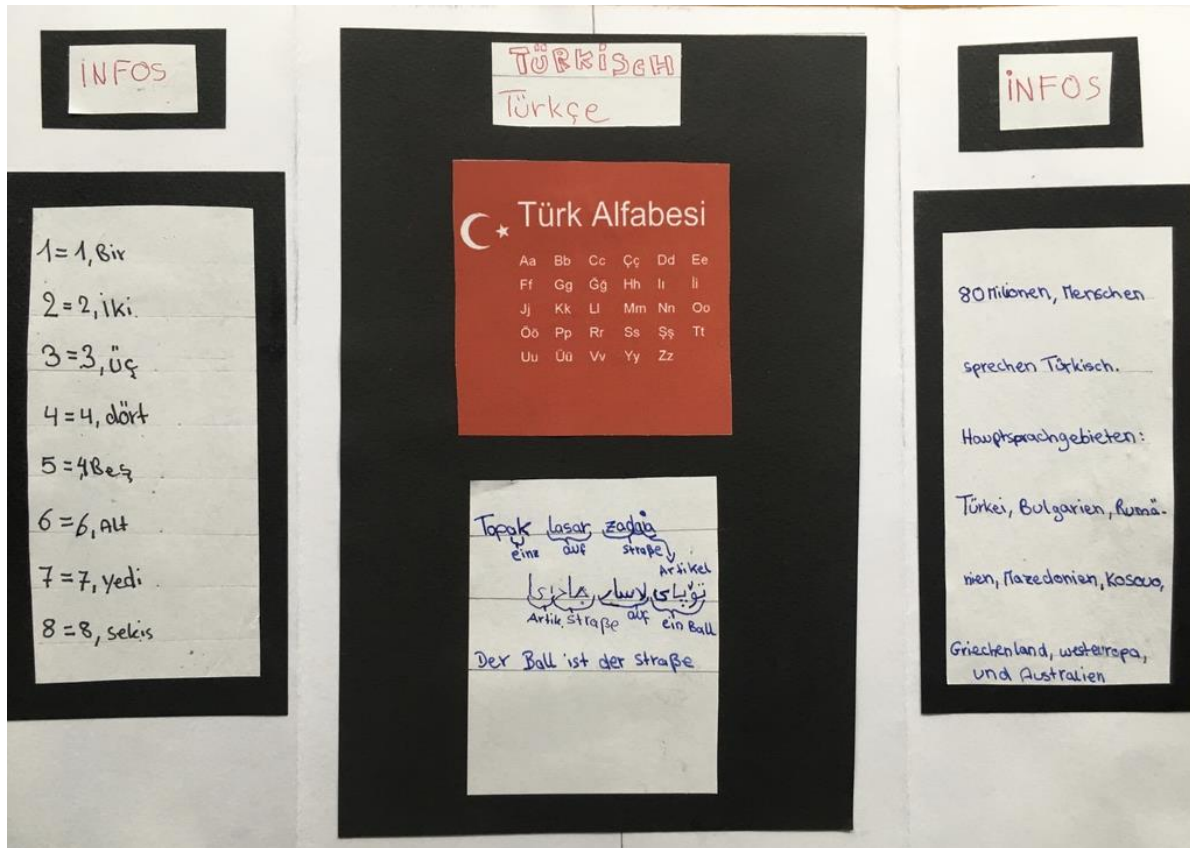 İNFOS
1 = 1, Bir
2 = 2, İki
3 = 3, üç
4 = 4, dört
5 = 4, Beş
6 = 6, Alt
7 = 7, yedi
8 = 8, sekis
TÜRKİSCH
Türkçe
Türk Alfabesi
Aa Bb Cc Çç Dd Ee
Ff Gg Ğğ Hh Iı İi
Jj Kk Ll Mm Nn Oo
Öö Pp Rr Ss Şş Tt
Uu Üü Vv Yy Zz
Topak lasar
eine auf straße
Artikel
لاسار
Artik. straße auf ein Ball
Der Ball ist der straße
İNFOS
80 Milionen, Menschen
sprechen Türkisch.
Hauptsprachgebieten:
Türkei, Bulgarien, Rumä-
nien, Mazedonien, Kosovo,
Griechenland, westeuropa,
und Australien